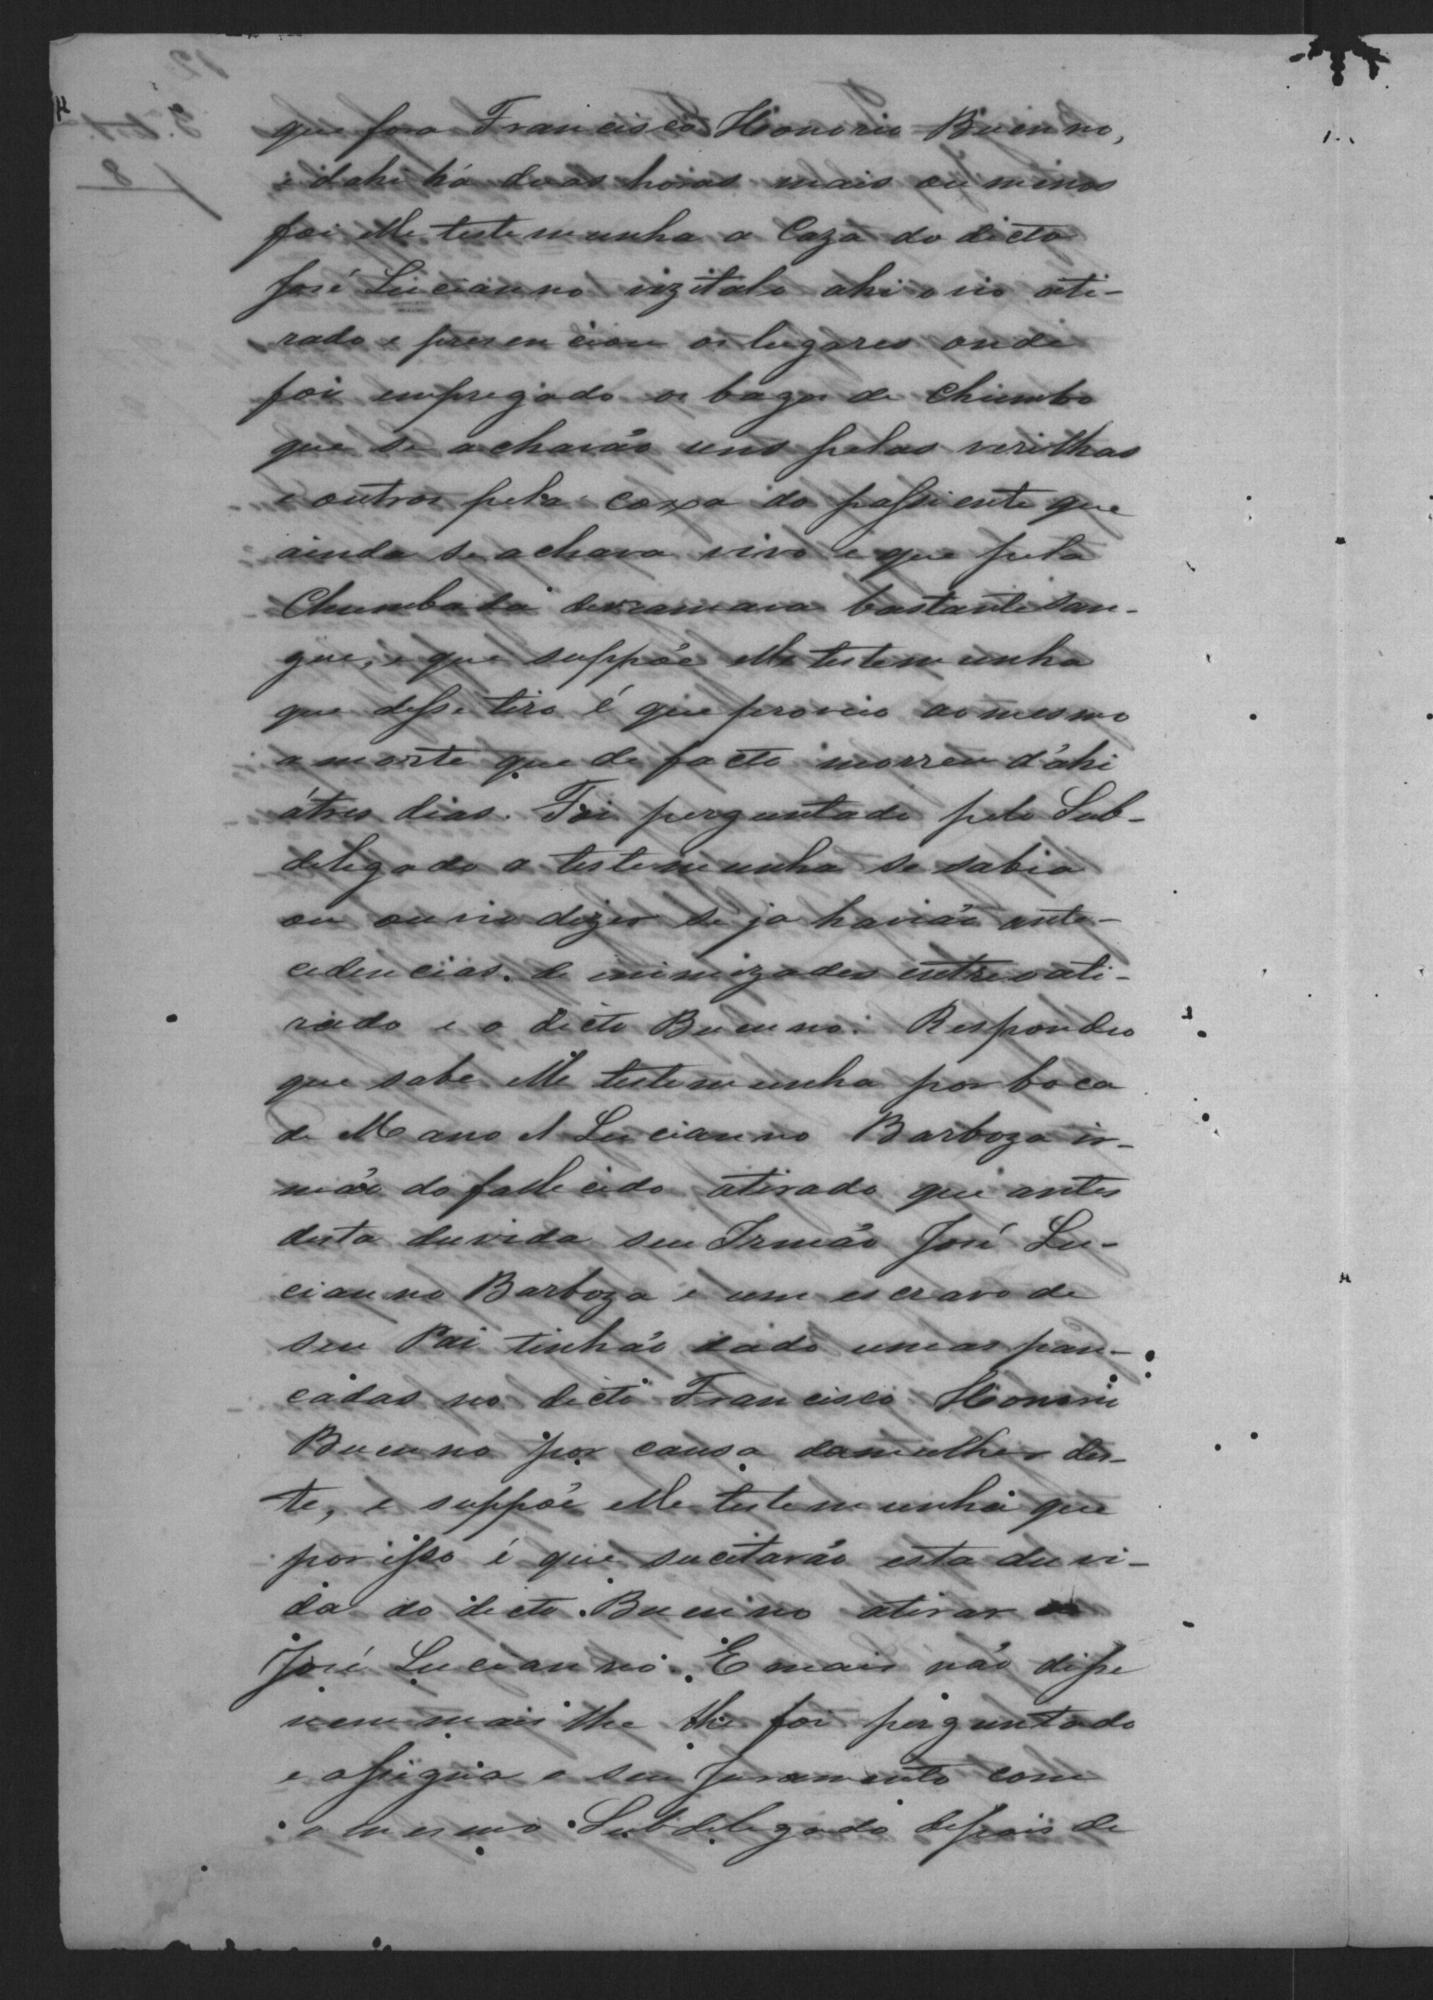 que fora Francisco Honorio Buenno,
e dahi há duas horas mais ou menos
foi elle testemunha a Caza do dicto
José Lucianno vizitalo ahi o vio ati-
rado e presenciou os lugares onde
foi empregado os bagos de chumbo
que se achavão uns pelas verilhas
e outros pela coxa do passiente que
ainda se achava vivo e que pela
Chumbada derramava bastante san-
gue, e que suppõe elle testemunha
que desse tiro é que proveio ao mesmo
a morte que de facto morreu d'ahi
á tres dias. Foi perguntado pelo Sub-
delegado a testemunha se sabia
ou ouvio dizer se ja havião ante-
cedencias de inimizades entre o ati-
rado e o dicto Buenno. Respondeo
que sabe elle testemunha por boca
de Manoel Lucianno Barboza ir-
mão do fallecido atirado que antes
desta duvida seu Irmão José Lu-
cianno Barboza e um escravo de
seu Pai tinhão dado umas pan-
cadas no dicto Francisco Honori
Buenno por causa da mulher des-
te, e suppõe elle testemunha que
por isso é que sucitarão esta duvi-
da do dicto Buenno atirar
José Lucianno. E mais não disse
nem mais lhe lhe foi perguntado
e assigna o seu Juramento com
o mesmo Subdelegado depois de